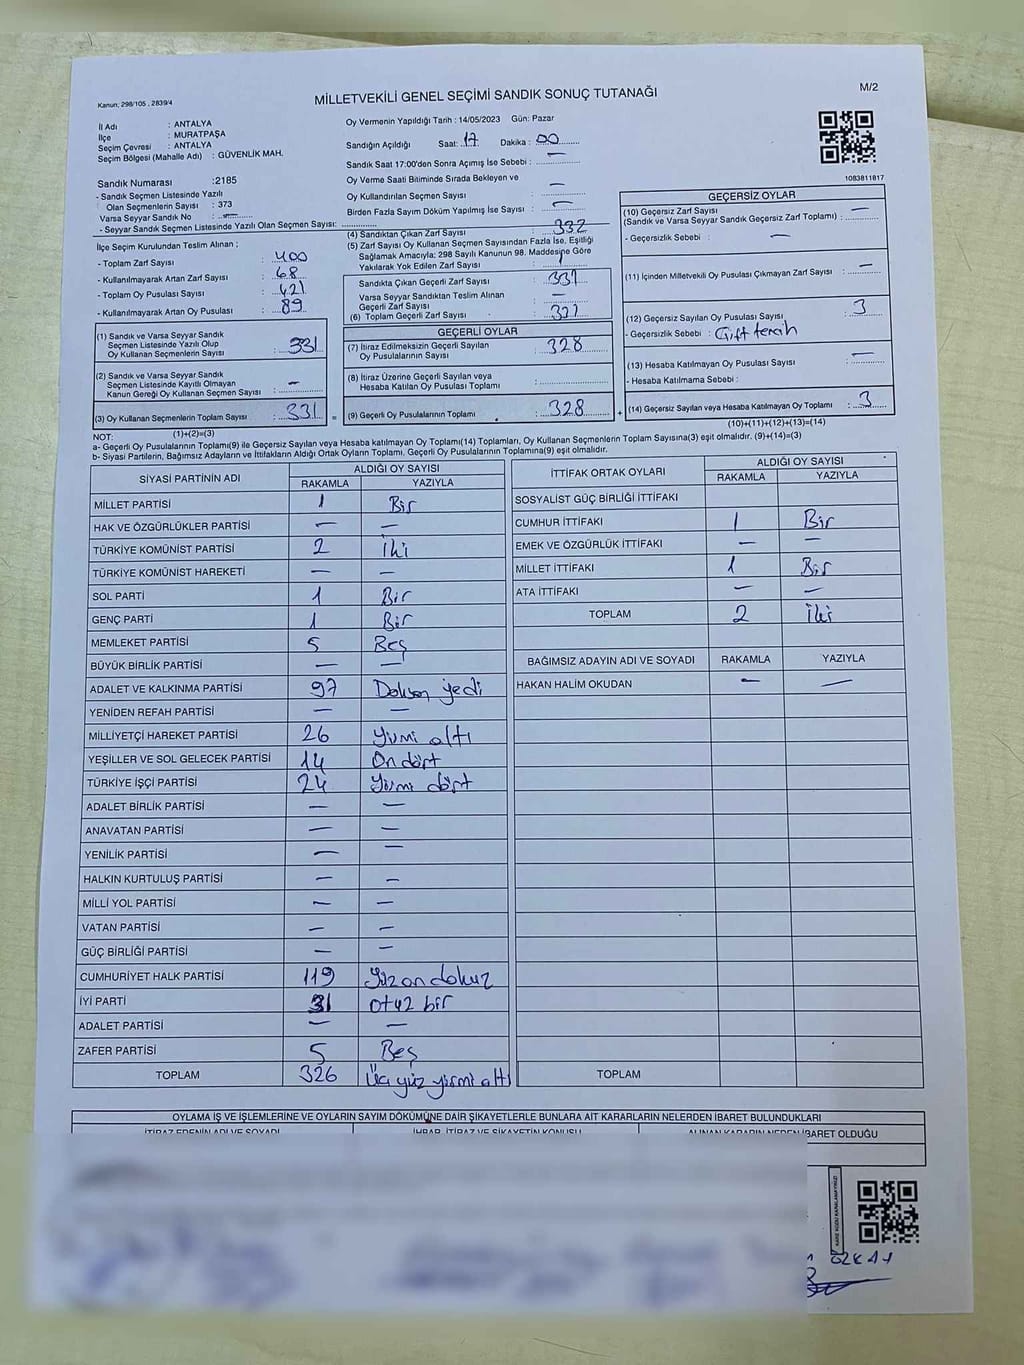 Kanun; 298/105 , 2839/4
MİLLETVEKİLİ GENEL SEÇİMİ SANDIK SONUÇ TUTANAĞI
M/2
İl Adı : ANTALYA
İlçe : MURATPAŞA
Seçim Çevresi : ANTALYA
Seçim Bölgesi (Mahalle Adı) : GÜVENLİK MAH.
Sandık Numarası :2185
- Sandık Seçmen Listesinde Yazılı
Olan Seçmenlerin Sayısı : 373
Varsa Seyyar Sandık No : —
- Seyyar Sandık Seçmen Listesinde Yazılı Olan Seçmen Sayısı:
İlçe Seçim Kurulundan Teslim Alınan ;
- Toplam Zarf Sayısı : 400
- Kullanılmayarak Artan Zarf Sayısı : 68
- Toplam Oy Pusulası Sayısı : 421
- Kullanılmayarak Artan Oy Pusulası : 89
(1) Sandık ve Varsa Seyyar Sandık
Seçmen Listesinde Yazılı Olup
Oy Kullanan Seçmenlerin Sayısı : 331
(2) Sandık ve Varsa Seyyar Sandık
Seçmen Listesinde Kayıtlı Olmayan
Kanun Gereği Oy Kullanan Seçmen Sayısı : —
(3) Oy Kullanan Seçmenlerin Toplam Sayısı : 331
(1)+(2)=(3)
Oy Vermenin Yapıldığı Tarih : 14/05/2023 Gün: Pazar
Sandığın Açıldığı Saat: 17 Dakika : 00
Sandık Saat 17:00'den Sonra Açımış İse Sebebi : —
Oy Verme Saati Bitiminde Sırada Bekleyen ve
Oy Kullandırılan Seçmen Sayısı —
Birden Fazla Sayım Döküm Yapılmış İse Sayısı : —
(4) Sandıktan Çıkan Zarf Sayısı : 332
(5) Zarf Sayısı Oy Kullanan Seçmen Sayısından Fazla İse, Eşitliği
Sağlamak Amacıyla; 298 Sayılı Kanunun 98. Maddesine Göre
Yakılarak Yok Edilen Zarf Sayısı : 1
Sandıkta Çıkan Geçerli Zarf Sayısı : 331
Varsa Seyyar Sandıktan Teslim Alınan
Geçerli Zarf Sayısı : —
(6) Toplam Geçerli Zarf Sayısı : 331
GEÇERLİ OYLAR
(7) İtiraz Edilmeksizin Geçerli Sayılan
Oy Pusulalarının Sayısı : 328
(8) İtiraz Üzerine Geçerli Sayılan veya
Hesaba Katılan Oy Pusulası Toplamı :
= (9) Geçerli Oy Pusulalarının Toplamı : 328
1083811817
GEÇERSİZ OYLAR
(10) Geçersiz Zarf Sayısı
(Sandık ve Varsa Seyyar Sandık Geçersiz Zarf Toplamı) : —
- Geçersizlik Sebebi : —
(11) İçinden Milletvekili Oy Pusulası Çıkmayan Zarf Sayısı : —
(12) Geçersiz Sayılan Oy Pusulası Sayısı : 3
- Geçersizlik Sebebi : Çift tercih
(13) Hesaba Katılmayan Oy Pusulası Sayısı : —
- Hesaba Katılmama Sebebi :
+ (14) Geçersiz Sayılan veya Hesaba Katılmayan Oy Toplamı : 3
(10)+(11)+(12)+(13)=(14)
NOT:
a- Geçerli Oy Pusulalarının Toplamı(9) ile Geçersiz Sayılan veya Hesaba katılmayan Oy Toplamı(14) Toplamları, Oy Kullanan Seçmenlerin Toplam Sayısına(3) eşit olmalıdır. (9)+(14)=(3)
b- Siyasi Partilerin, Bağımsız Adayların ve İttifakların Aldığı Ortak Oyların Toplamı, Geçerli Oy Pusulalarının Toplamına(9) eşit olmalıdır.
SİYASİ PARTİNİN ADI ALDIĞI OY SAYISI
RAKAMLA YAZIYLA
MİLLET PARTİSİ 1 Bir
HAK VE ÖZGÜRLÜKLER PARTİSİ — —
TÜRKİYE KOMÜNİST PARTİSİ 2 İki
TÜRKİYE KOMÜNİST HAREKETİ — —
SOL PARTİ 1 Bir
GENÇ PARTİ 1 Bir
MEMLEKET PARTİSİ 5 Beş
BÜYÜK BİRLİK PARTİSİ — —
ADALET VE KALKINMA PARTİSİ 97 Doksan yedi
YENİDEN REFAH PARTİSİ — —
MİLLİYETÇİ HAREKET PARTİSİ 26 Yirmi altı
YEŞİLLER VE SOL GELECEK PARTİSİ 14 On dört
TÜRKİYE İŞÇİ PARTİSİ 24 Yirmi dört
ADALET BİRLİK PARTİSİ — —
ANAVATAN PARTİSİ — —
YENİLİK PARTİSİ — —
HALKIN KURTULUŞ PARTİSİ — —
MİLLİ YOL PARTİSİ — —
VATAN PARTİSİ — —
GÜÇ BİRLİĞİ PARTİSİ — —
CUMHURİYET HALK PARTİSİ 119 Yüz on dokuz
İYİ PARTİ 31 otuz bir
ADALET PARTİSİ — —
ZAFER PARTİSİ 5 Beş
TOPLAM 326 Üç yüz yirmi altı
İTTİFAK ORTAK OYLARI ALDIĞI OY SAYISI
RAKAMLA YAZIYLA
SOSYALİST GÜÇ BİRLİĞİ İTTİFAKI
CUMHUR İTTİFAKI 1 Bir
EMEK VE ÖZGÜRLÜK İTTİFAKI — —
MİLLET İTTİFAKI 1 Bir
ATA İTTİFAKI — —
TOPLAM 2 İki
BAĞIMSIZ ADAYIN ADI VE SOYADI RAKAMLA YAZIYLA
HAKAN HALİM OKUDAN — —
TOPLAM
OYLAMA İŞ VE İŞLEMLERİNE VE OYLARIN SAYIM DÖKÜMÜNE DAİR ŞİKAYETLERLE BUNLARA AİT KARARLARIN NELERDEN İBARET BULUNDUKLARI
İTİRAZ EDENİN ADI VE SOYADI İHBAR, İTİRAZ VE ŞİKAYETİN KONUSU ALINAN KARARIN NEDEN İBARET OLDUĞU
KARE KODU KARALAMAYINIZ!